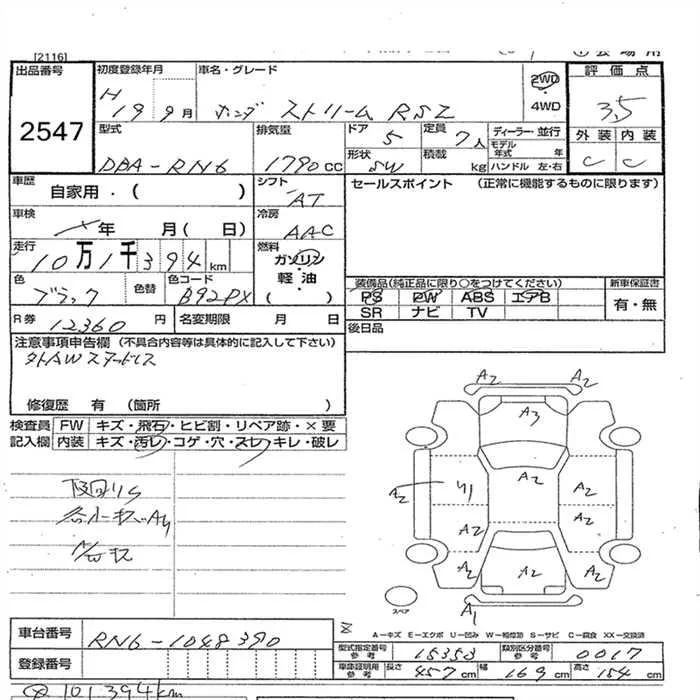 [2116]
出品番号 初度登録年月 車名・グレード 2WD ・ 4WD 評価点
2547
H 19 9月 ホンダ ストリーム RSZ 3.5
外装 内装
C C
型式 排気量 ドア 5 定員 7人 ディーラー・並行
モデル年式 年
DBA-RN6 1790CC 形状 SW 積載 kg ハンドル 左・右
車歴 自家用・( ) シフト AT セールスポイント (正常に機能するものに限ります)
車検 年 月( 日) 冷房 AAC
走行 10万1千394km 燃料 ガソリン 軽・油 ( )
色 ブラック 色替 色コード B92PX
装備品(純正品に限り○をつけてください) 新車保証書
PS PW ABS エアB 有・無
SR ナビ TV
R券 12360円 名変期限 月 日 後日品
注意事項申告欄(不具合内容等は具体的に記入して下さい)
外AWスタッドレス
修復歴 有 (箇所 )
検査員記入欄 FW キズ・飛石・ヒビ割・リペア跡・×要
内装 キズ・汚レ・コゲ・穴・スレ・キレ・破レ
A2 A2
A3
A2 A2 A2
A2 A2
A2 A2 A2
A1
スペア
A-キズ E-エクボ U-凹み W-補修跡 S-サビ C-腐食 XX-交換済
車台番号 RN6-1048390
登録番号
型式指定番号参考 15353 類別区分番号参考 0017
車庫証明用参考 長さ 457cm 幅 169cm 高さ 154cm
101,394km